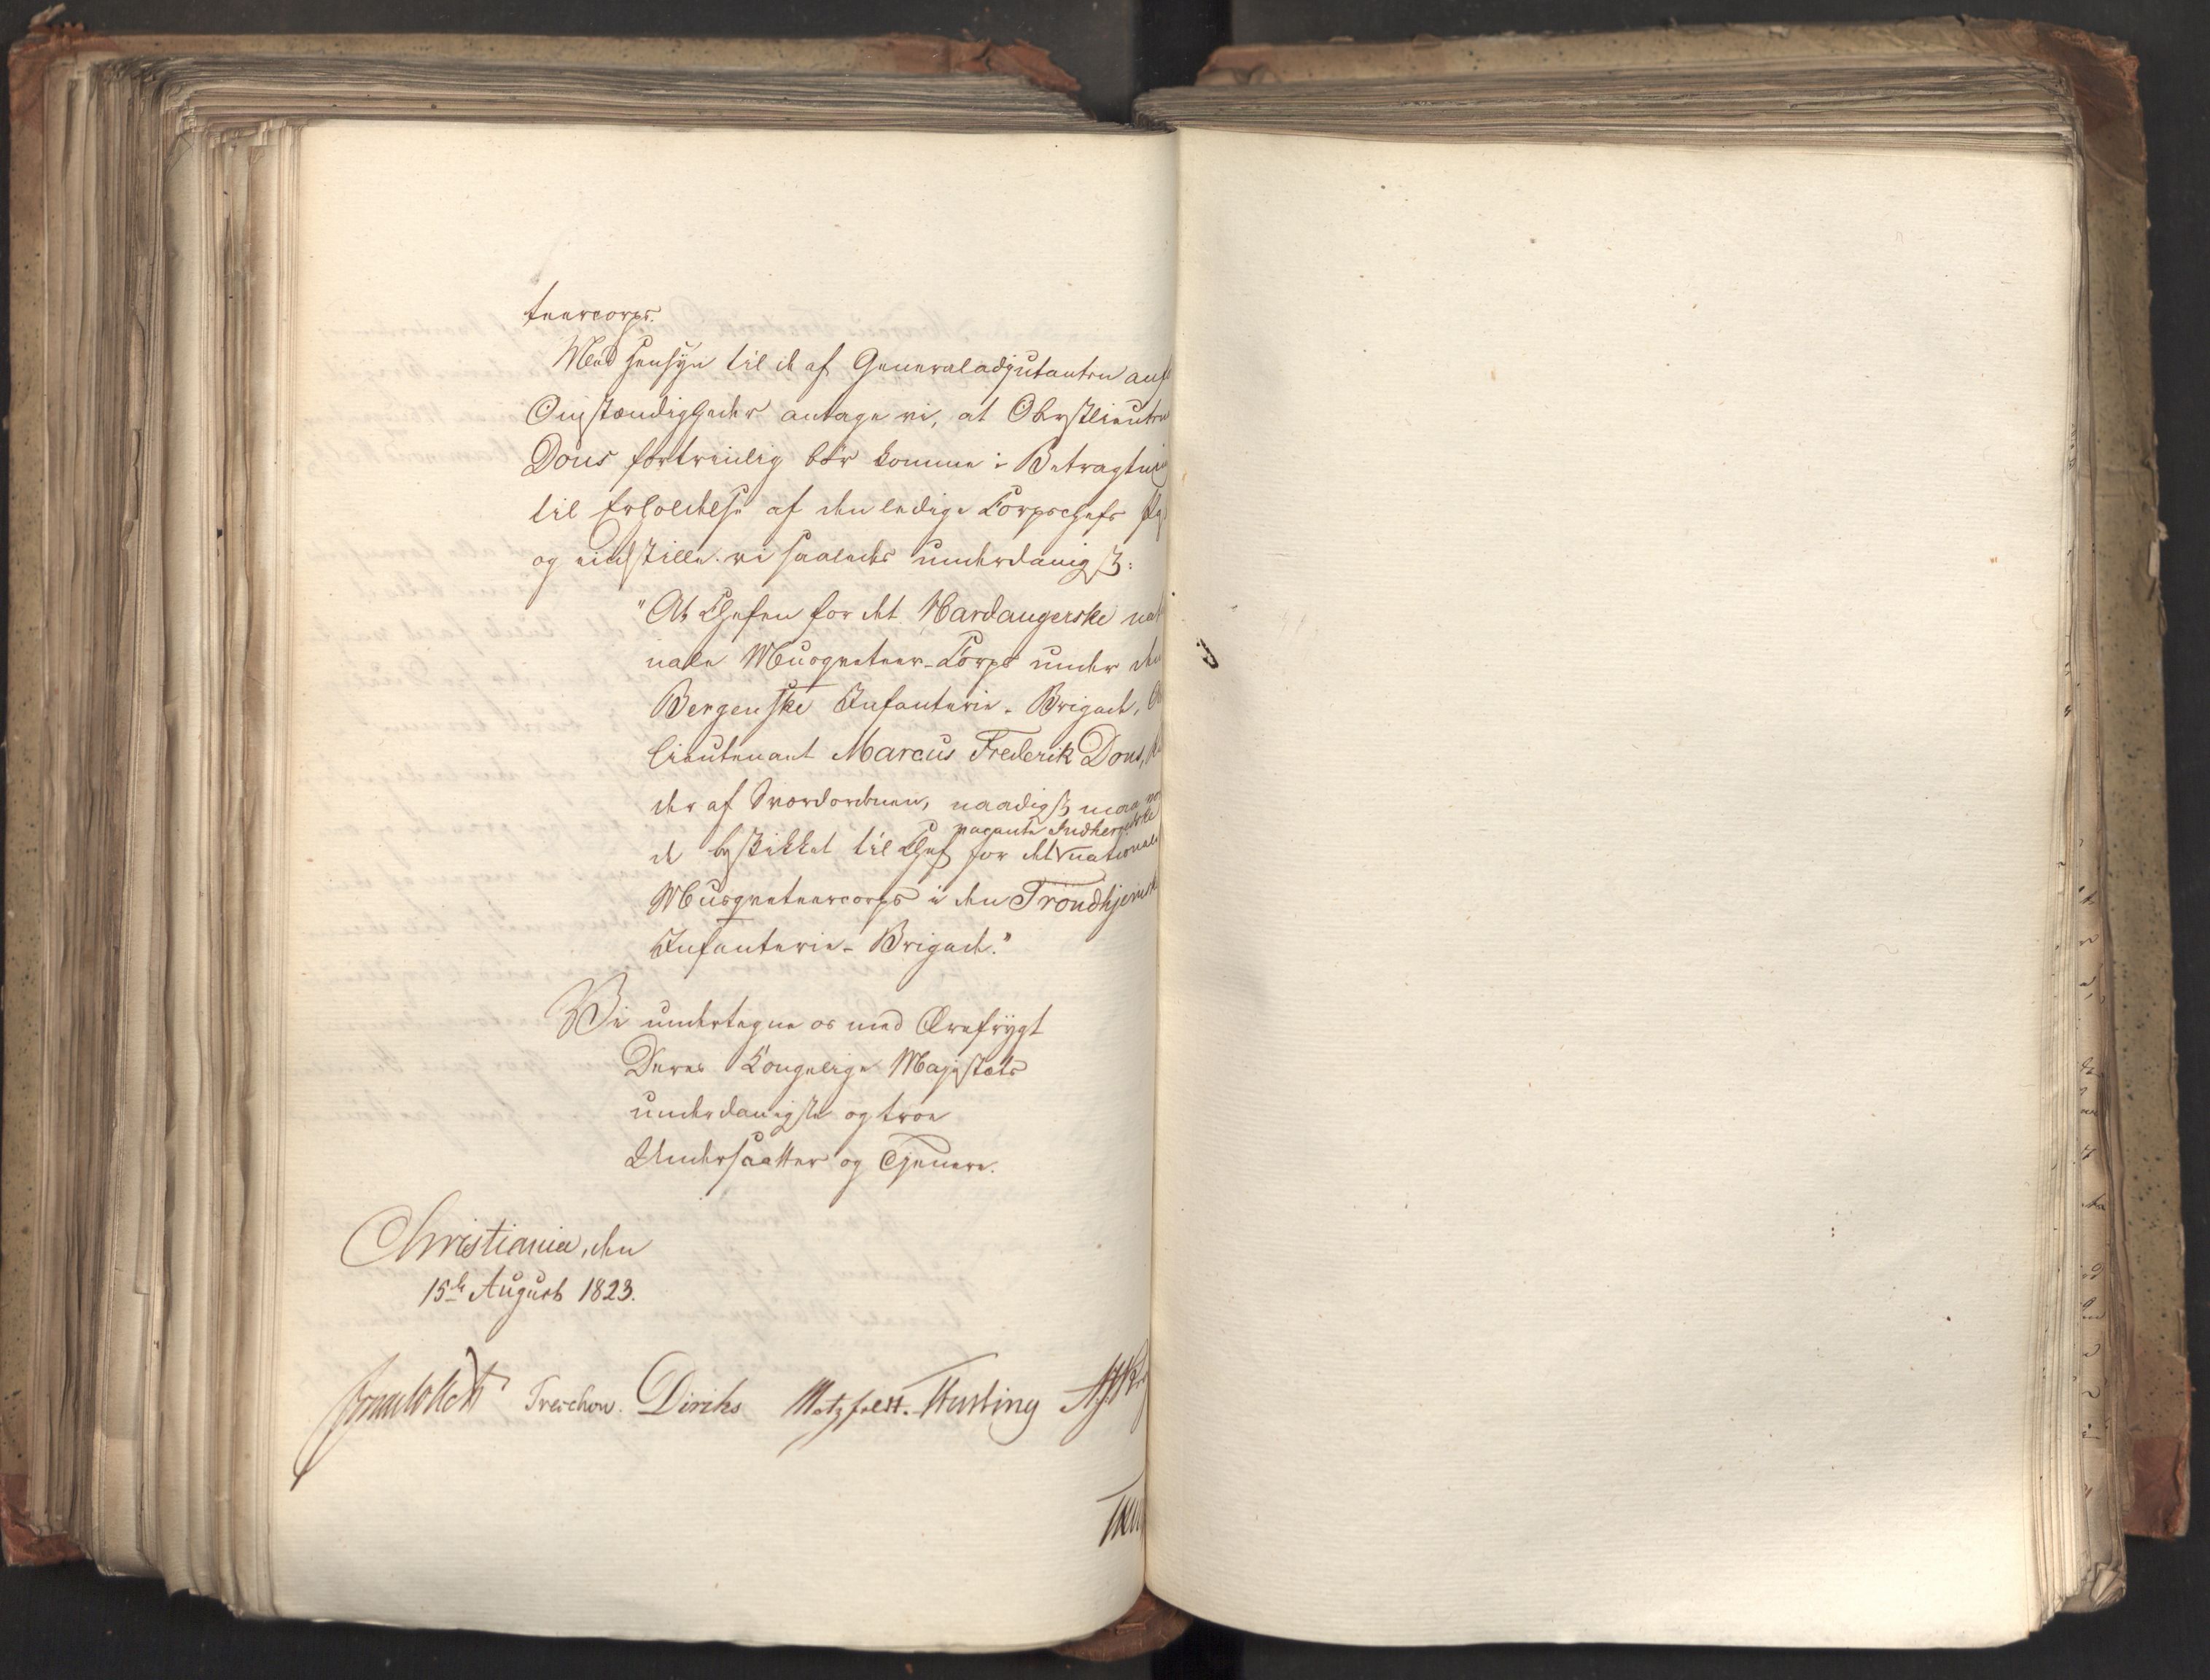 teercorps.
Med Hensyn til de af Generaladjutanten anf
Omstændigheder antage vi, at Oberstlieutn
Dons fortrinlig bör komme i Betragtning
til Erholdelse af den ledige Corpschefs
og indstille vi saaledes underdanigst:
"At Chefen for det Hardangerske nat
nale Musqueteer-Corps under den
Bergenske Infanterie-Brigade, O
lieutenant Marcus Frederik Dons, R
der af Sværdordenen, naadigst maa vor
vacante Indherredske
de beskikket til Chef for det nationale
Musqueteercorps i den Trondhjemsk
Infanterie-Brigade."
Vi undertegne os med Ærefrygt
Deres Kongelige Majestæts
underdanigste og troe
Undersaatter og Tjenere.
Christiania, den
15de August 1823.
Treschow. Diriks Motzfeldt. Fasting